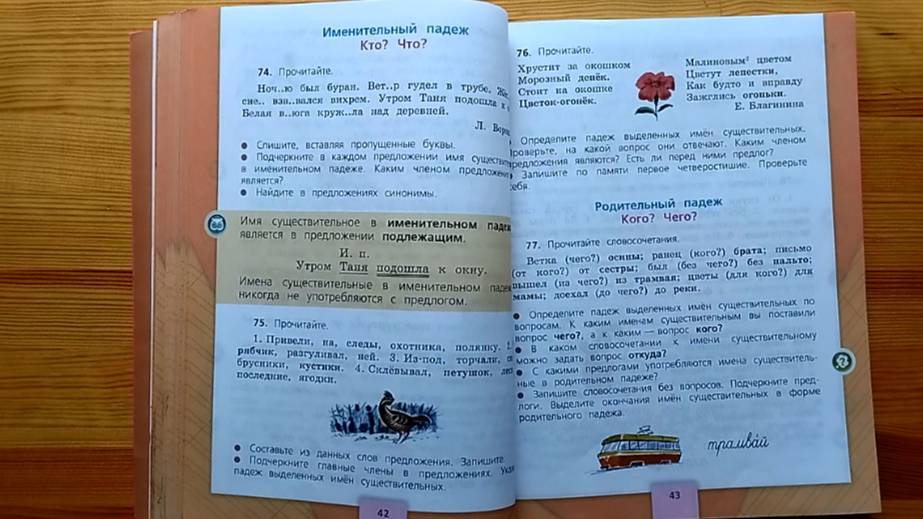 Именительный падеж
Кто? Что?
74. Прочитайте.
Ноч..ю был буран. Вет..р гудел в трубе.
сне.. взв..вался вихрем. Утром Таня подошла к
Белая в..юга круж..ла над деревней.
Л.
● Спишите, вставляя пропущенные буквы.
● Подчеркните в каждом предложении имя
в именительном падеже. Каким членом
является?
● Найдите в предложениях синонимы.
Имя существительное в именительном
является в предложении подлежащим.
И. п.
Утром Таня подошла к окну.
Имена существительные в именительном
никогда не употребляются с предлогом.
75. Прочитайте.
1. Привели, на, следы, охотника, полянку.
рябчик, разгуливал, ней. 3. Из-под, торчали,
брусники, кустики. 4. Склёвывал, петушок,
последние, ягодки.
● Составьте из данных слов предложения. Запишите.
● Подчеркните главные члены в предложениях.
падеж выделенных имён существительных.
42
76. Прочитайте.
Хрустит за окошком
Морозный денёк.
Стоит на окошке
Цветок-огонёк.
Малиновым² цветом
Цветут лепестки,
Как будто и вправду
Зажглись огоньки.
Е. Благинина
Определите падеж выделенных имён существительных.
на какой вопрос они отвечают. Каким членом
являются? Есть ли перед ними предлог?
Запишите по памяти первое четверостишие. Проверьте
себя.
Родительный падеж
Кого? Чего?
77. Прочитайте словосочетания.
Ветка (чего?) осины; ранец (кого?) брата; письмо
(от кого?) от сестры; был (без чего?) без пальто;
вышел (из чего?) из трамвая; цветы (для кого?) для
мамы; доехал (до чего?) до реки.
● Определите падеж выделенных имён существительных по
вопросам. К каким именам существительным вы поставили
вопрос чего?, а к каким — вопрос кого?
● В каком словосочетании к имени существительному
можно задать вопрос откуда?
● С какими предлогами употребляются имена существитель-
ные в родительном падеже?
● Запишите словосочетания без вопросов. Подчеркните пред-
логи. Выделите окончания имён существительных в форме
родительного падежа.
трамвай
43